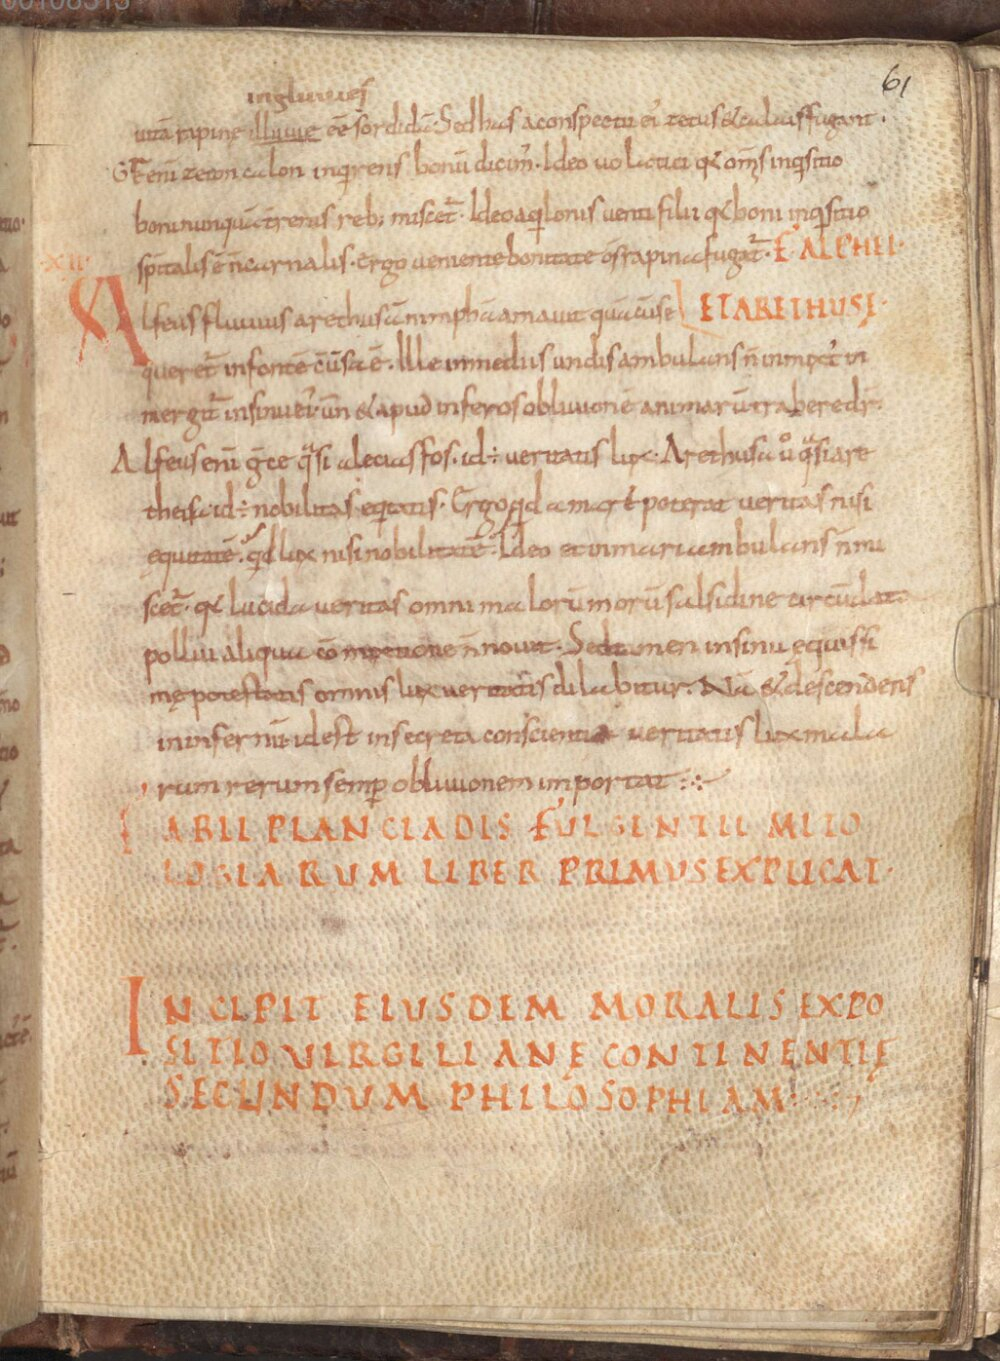 61
ingluuiei
uitā rapinę illuuie eē sordidā. Sed has a conspectu ei' zetus & calais fugant.
G̅R enī zeton calon inq̇rens bonū dicim'. Ideo uolatici q̇ om̄s inq̇sitio
boni nunquā terrenis reb; miscet̄. Ideo aq̇lonis uenti filii q̇ boni inq̇sitio
sp̄italis ē n̄ carnalis. Ergo ueniente bonitate om̄s rapina fugat̄. F̄ ALPHEI
XII
Alfeus fluuius arethusā nimphā amauit quā cū se ET ARETHUSĘ.
queret̄ in fontē cūersa ē. Ille in mediis undis ambulans n̄ inmixt' in
mergit̄ in sinu ei'. un̄ & apud inferos obliuionē animarū trahere dr̄.
Alfeus enī gr̄ce q̄si alecias fos. id ÷ ueritatis lux. Arethusa u̇ q̄si are
theisa id ÷ nobilitas eq̇tatis. Ergo q̇d amare poterat ueritas nisi
ęquitatē. q̇d lux nisi nobilitatē. Ideo et in mari ambulans n̄ mi
scet̄. q̇ lucida ueritas omni malorū morū salsidine circūdata
pollui aliqua cōmixtione n̄ nouit. Sed tamen in sinu ęquissi
mę potestatis omnis lux ueritatis dilabitur. Nā & descendens
in infernū id est in secreta conscientiae ueritatis lux mala
rum rerum semp̄ obliuionem importat
FABII PLANCIADIS FULGENTII MITO
LOGIARUM LIBER PRIMUS EXPLICAT.
INCIPIT EIUSDEM MORALIS EXPO
SITIO VIRGILIANĘ CONTINENTIĘ
SECUNDUM PHILOSOPHIAM